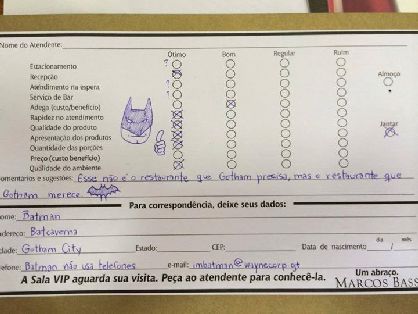 Nome do Atendente:
Ótimo Bom Regular Ruim
Estacionamento ?
Recepção
Atendimento na espera ?
Serviço de Bar ?
Adega (custo/benefício)
Rapidez no atendimento
Qualidade do produto
Apresentação dos produtos
Quantidade das porções
Preço (custo benefício)
Qualidade do ambiente
Almoço
Jantar
omentários e sugestões: Esse não é o restaurante que Gotham precisa, mas o restaurante que
Gotham merece
Para correspondência, deixe seus dados:
ome: Batman
ndereço: Batcaverna
idade: Gotham City Estado: CEP: Data de nascimento dia / mês
elefone: Batman não usa telefones e-mail: imbatman@waynecorp.gt
A Sala VIP aguarda sua visita. Peça ao atendente para conhecê-la.
Um abraço.
MARCOS BASS